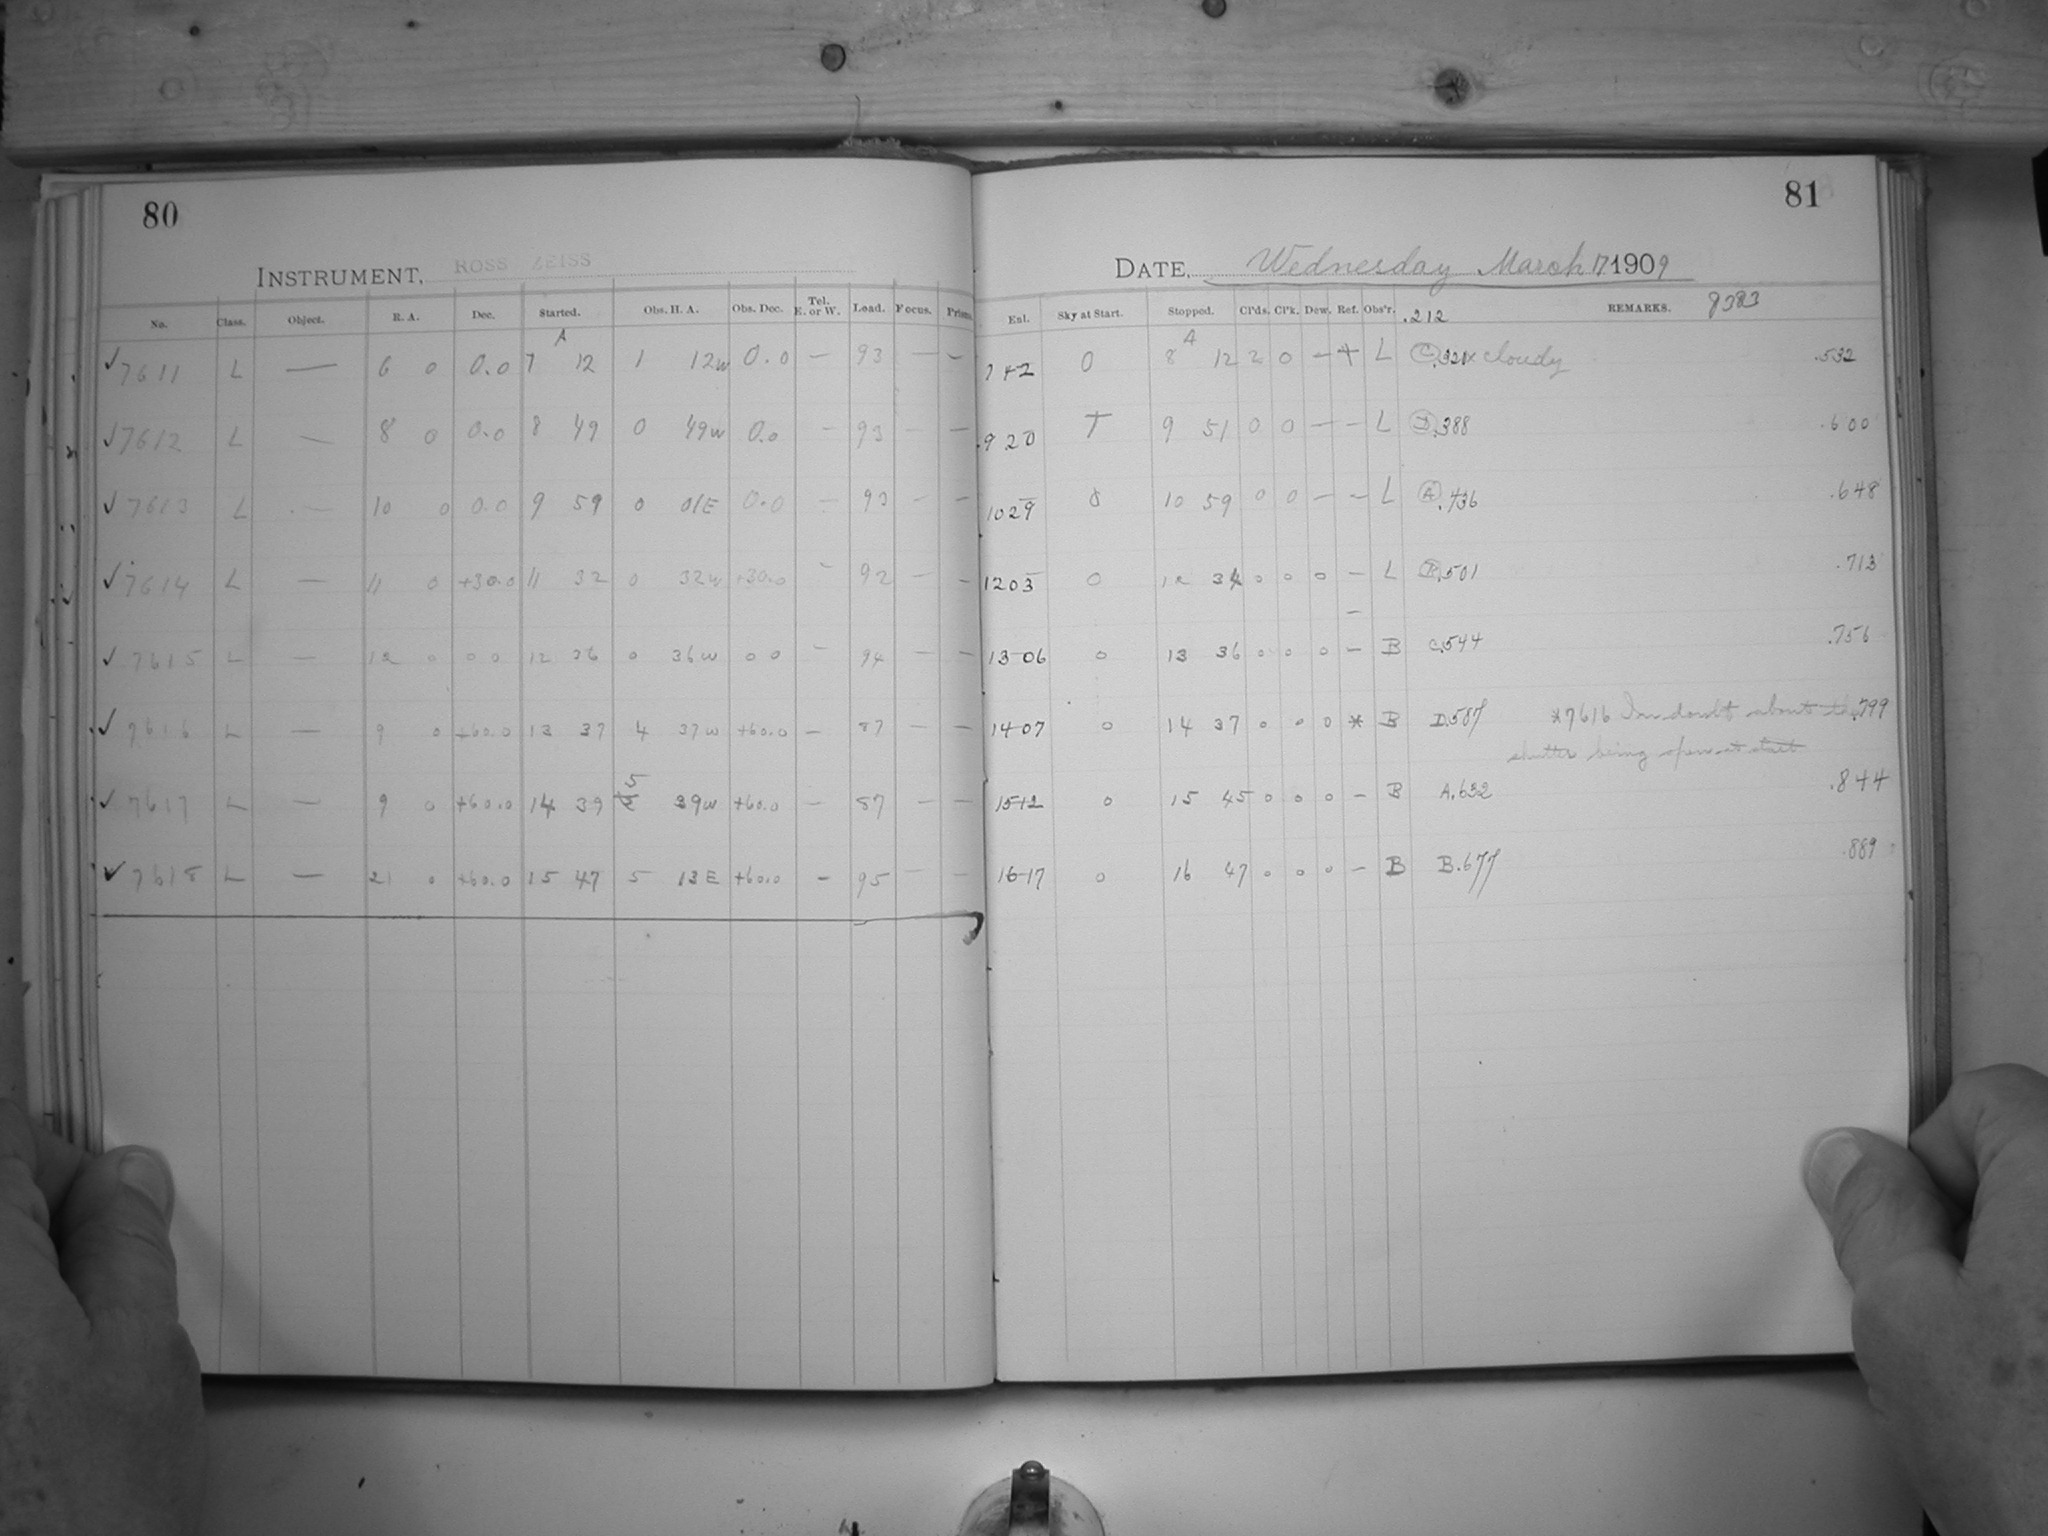 80
INSTRUMENT, ROSS ZEISS
No. Class. Object. R. A. Dec. Started. Obs. H. A. Obs. Dec. Tel. E. or W. Load. Focus. Prism.
A
✓7611 L — 6 0 0.0 7 12 1 12w 0.0 — 93 — —
✓7612 L — 8 0 0.0 8 49 0 49w 0.0 — 93 — —
✓7613 L — 10 0 0.0 9 59 0 01E 0.0 — 93 — —
✓7614 L — 11 0 +30.0 11 32 0 32w +30.0 — 92 — —
✓7615 L — 12 0 0 0 12 36 0 36w 0 0 — 94 — —
✓7616 L — 9 0 +60.0 13 37 4 37w +60.0 — 87 — —
✓7617 L — 9 0 +60.0 14 39 5 39w +60.0 — 87 — —
✓7618 L — 21 0 +60.0 15 47 5 13E +60.0 — 95 — —
81
DATE, Wednesday March 17 1909
Enl. Sky at Start. Stopped. Cl'ds. Cl'k. Dew. Ref. Obs'r. .212 REMARKS. 8383
A
742 0 8 12 2 0 — + L C.321x cloudy .532
920 T 9 51 0 0 — — L D.388 .600
1029 8 10 59 0 0 — — L A.436 .648
1203 0 12 34 0 0 0 — L B.501 .713
13-06 0 13 36 0 0 0 — B C.544 .756
14-07 0 14 37 0 0 0 * B D.587 *7616 In doubt about the .799
shutter being open at start
15-12 0 15 45 0 0 0 — B A.632 .844
16-17 0 16 47 0 0 0 — B B.677 .889